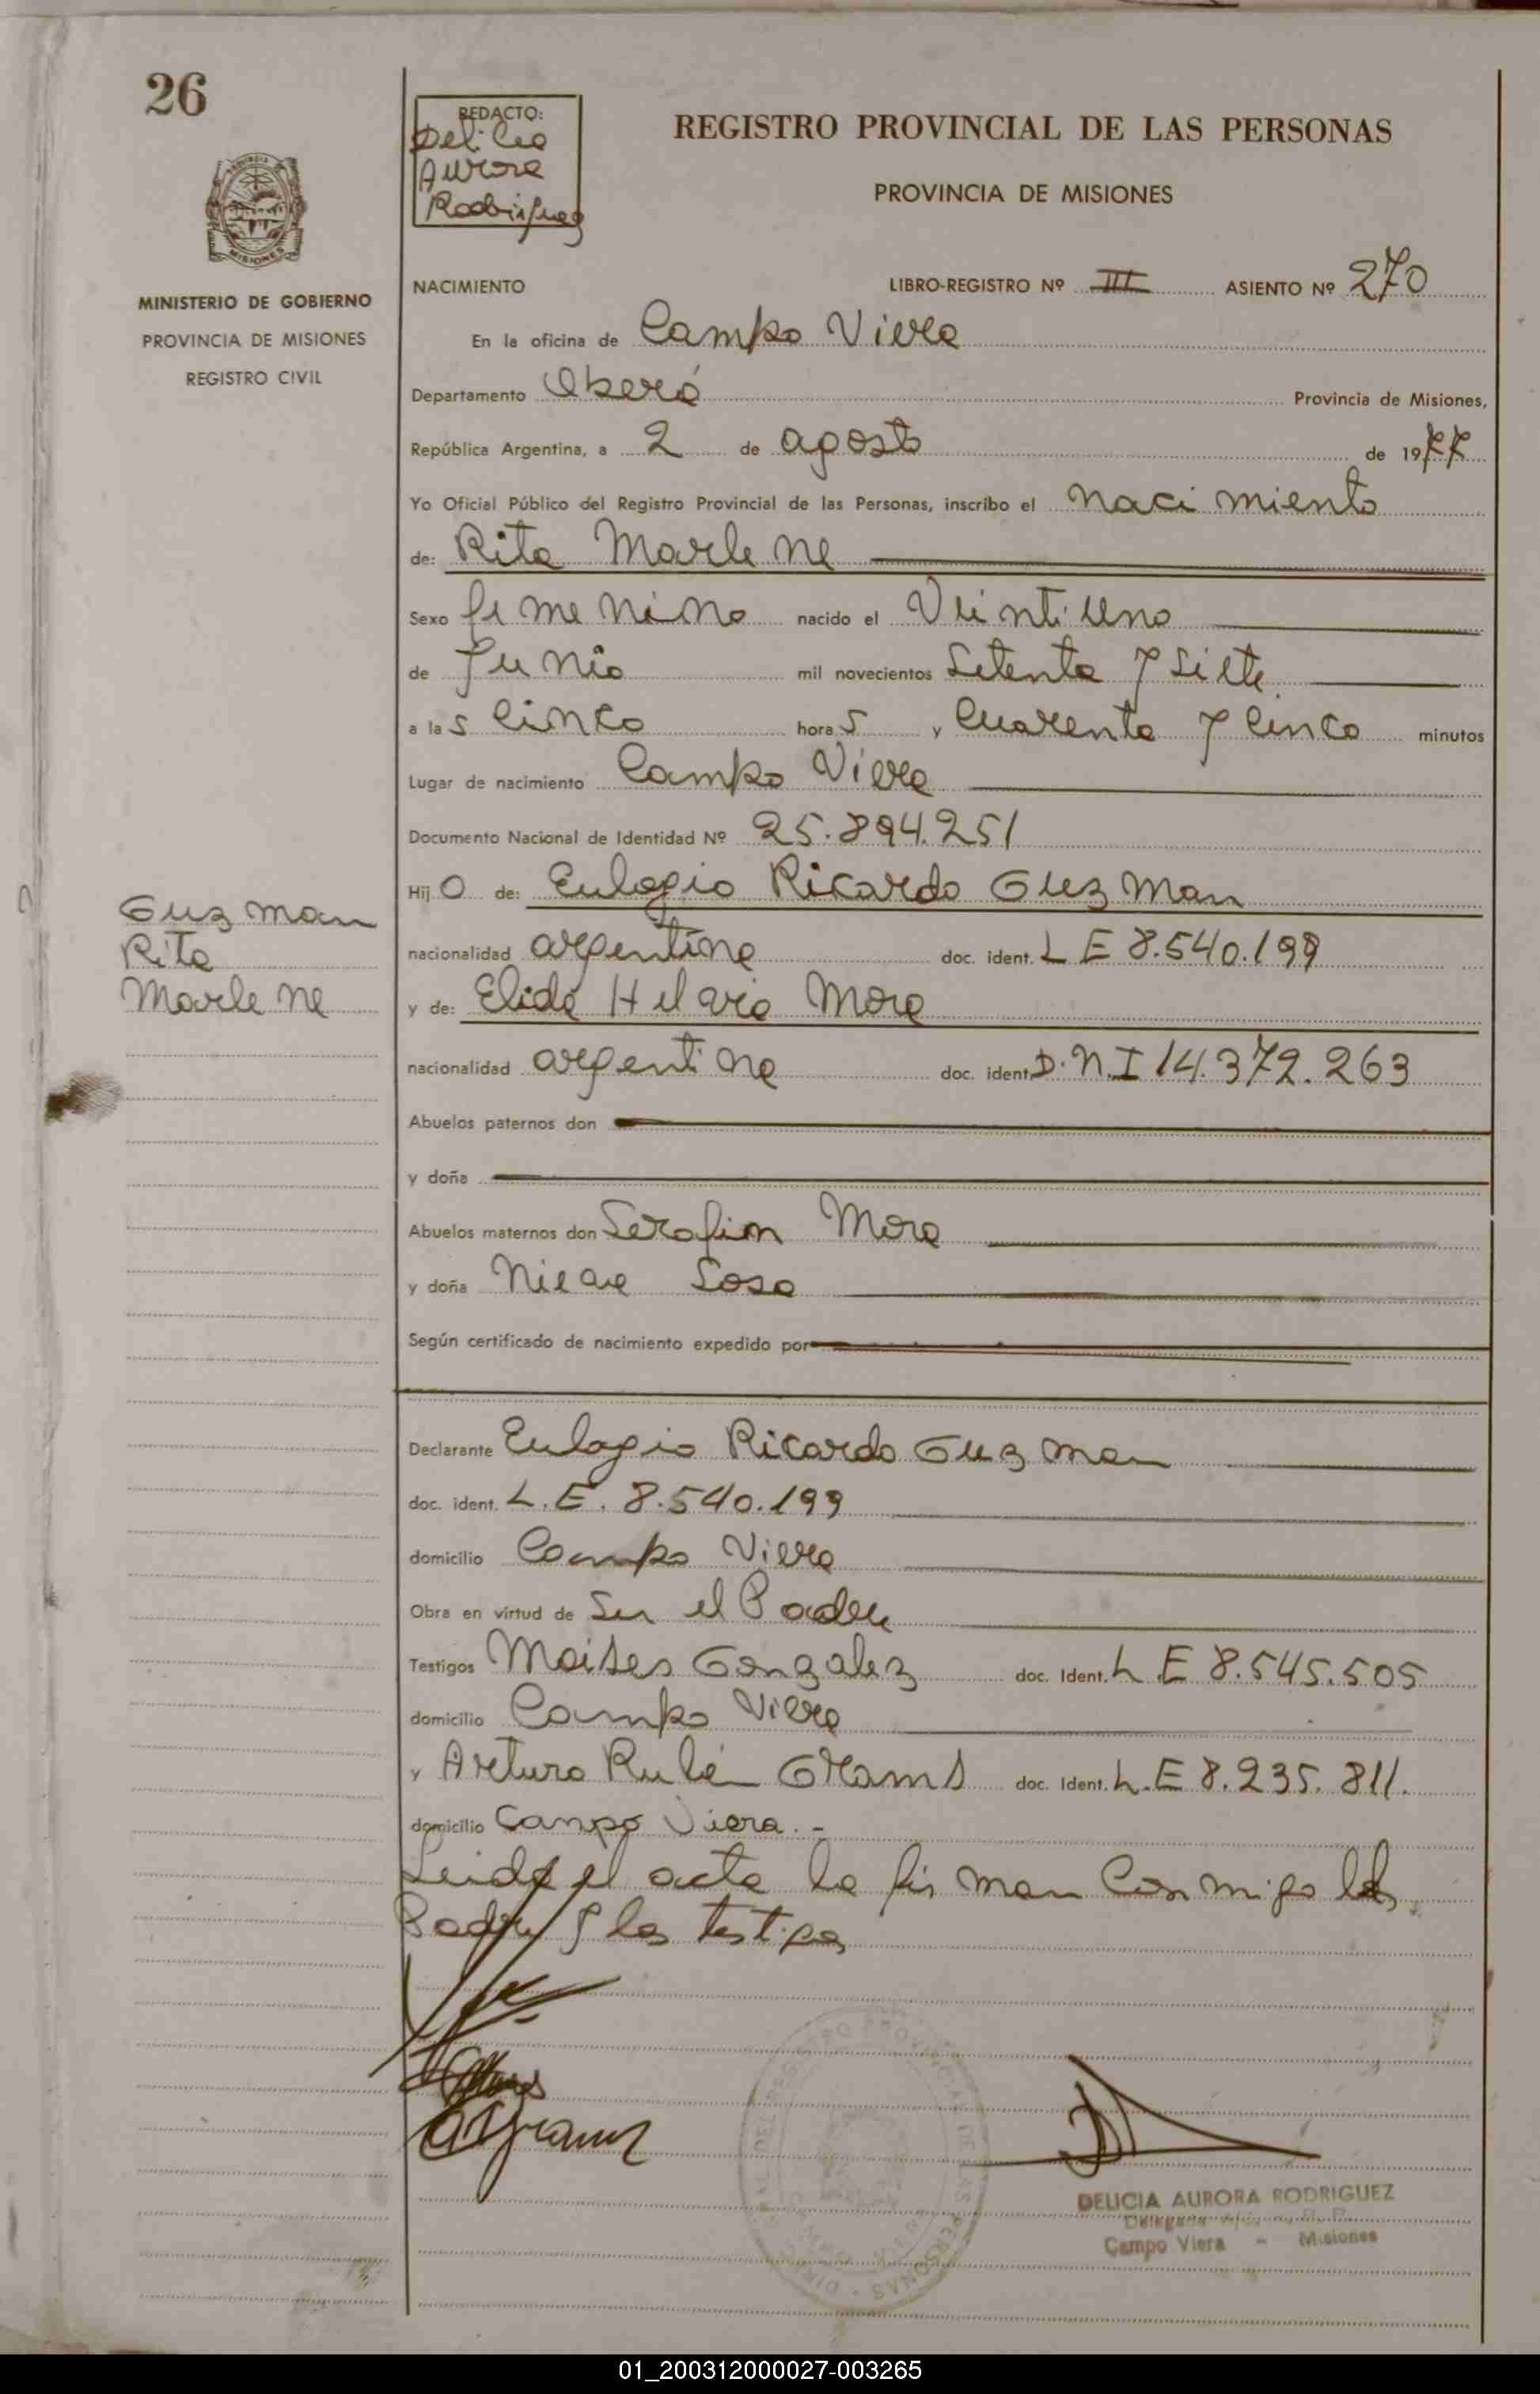 26
REDACTO:
Delicia
Aurora
Rodriguez
REGISTRO PROVINCIAL DE LAS PERSONAS
PROVINCIA DE MISIONES
MISIONES
MINISTERIO DE GOBIERNO
PROVINCIA DE MISIONES
REGISTRO CIVIL
NACIMIENTO LIBRO-REGISTRO Nº III ASIENTO Nº 270
En la oficina de Campo Viera
Departamento Oberá Provincia de Misiones,
República Argentina, a 2 de agosto de 1977
Yo Oficial Público del Registro Provincial de las Personas, inscribo el nacimiento
de: Rita Marlene
Sexo femenino nacido el Veintiuno
de Junio mil novecientos Setenta y Siete
a las cinco horas y Cuarenta y cinco minutos
Lugar de nacimiento Campo Viera
Documento Nacional de Identidad Nº 25.894.251
Hijo de: Eulogio Ricardo Guzman
Guzman
Rita
Marlene
nacionalidad argentina doc. ident. L E 8.540.199
y de: Elida Mora
nacionalidad argentina doc. ident. D.N.I 14.372.263
Abuelos paternos don
y doña
Abuelos maternos don Serafin Mora
y doña Sosa
Según certificado de nacimiento expedido por
Declarante Eulogio Ricardo Guzman
doc. ident. L.E. 8.540.199
domicilio Campo Viera
Obra en virtud de Ser el Padre
Testigos Moises Gonzalez doc. Ident. L.E 8.545.505
domicilio Campo Viera
y Arturo Rubén Grams doc. Ident. L.E 8.235.811.
domicilio Campo Viera.-
Leida el acta la firman Conmigo los
Padre y los testigos
DELICIA AURORA RODRIGUEZ
Campo Viera - Misiones
01_200312000027-003265